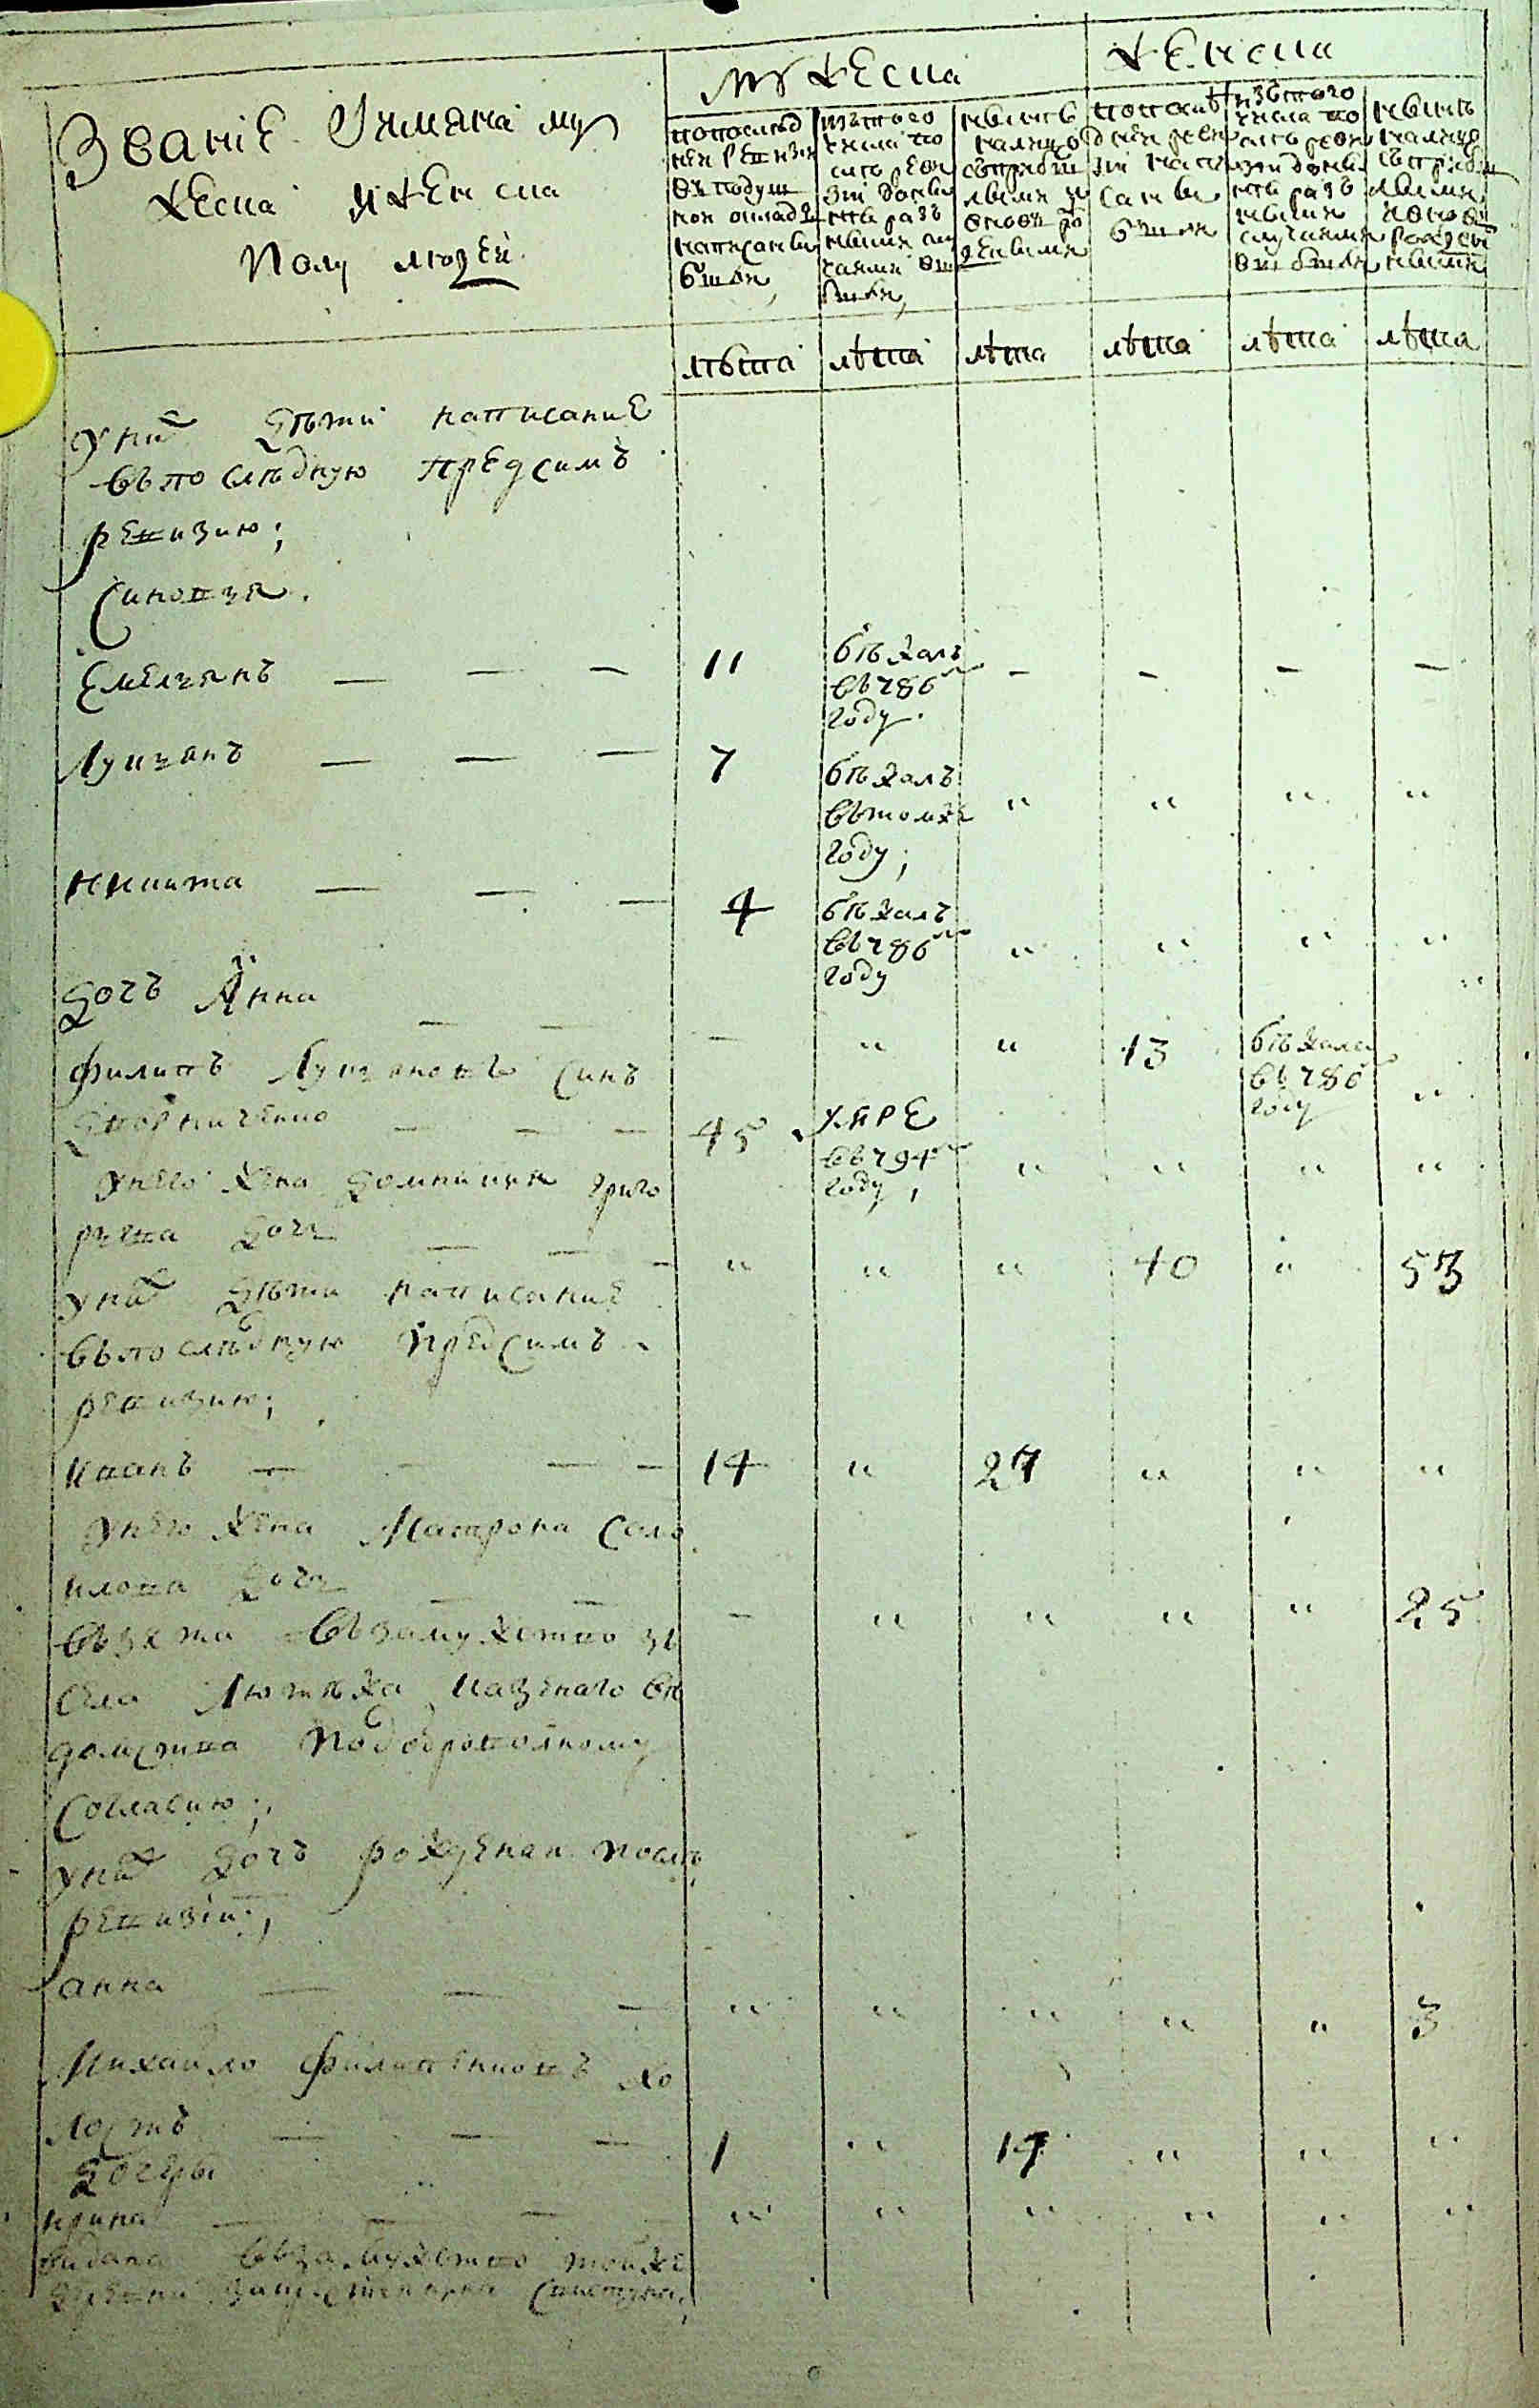 Званіе Иимяна му
жеска ижен ска
Полу людей.
мужеска
женска
попослѣд
ней ревизіи
въ подуш
ной окладъ
написаны
были,
изътого
числа по
слѣ реви
зіи
разъ
ными слу
чаями вы
были,
нынѣ
налицо
съприбы
лыми и
вновь ро
ждеными
попослѣ
дней реви
зіи напи
саны
были
изътого
числа по
слѣ реви
зіи
разъ
ными
случаями
вы были
нынѣ
налицо
съприбы
лыми
ивновь
рожден
ными
лѣта лѣта лѣта лѣта лѣта лѣта
унй дѣти написание
въпослѣдную предсимъ
ревизию;
Синовя.
Емелянъ — — — 11 бѣжалъ въ786м году. — — — —
Лукянъ — — — 7 бѣжалъ вътомже году; " " " "
Никита — — — 4 бѣжалъ въ786м году " " " "
дочъ Анна — — — " " 13 бѣжала въ786 году "
Филипъ Лукяновъ синъ
— — — 45 умре въ794м году, " " " "
унего жена Домникия григо
рева дочь — — — " " " 40 " 53
унй дѣти написание
въпослѣдную Предсимъ
ревизию;
Иванъ — — — 14 " 27 " " "
унего жена Матрона Само
илова дочь — — — " " " " 25
взята възамужство зъ
села Лютѣжа казенаго вѣ
домства Подобровольному
согласию;
унй дочъ рожденая послѣ
ревизіи;
анна — — — " " " " " 3
Михайло Филипенковъ хо
лостъ — — — 1 " 14 " " "
дочеры
ирина — — — " " " " " "
видана възамужство тойже